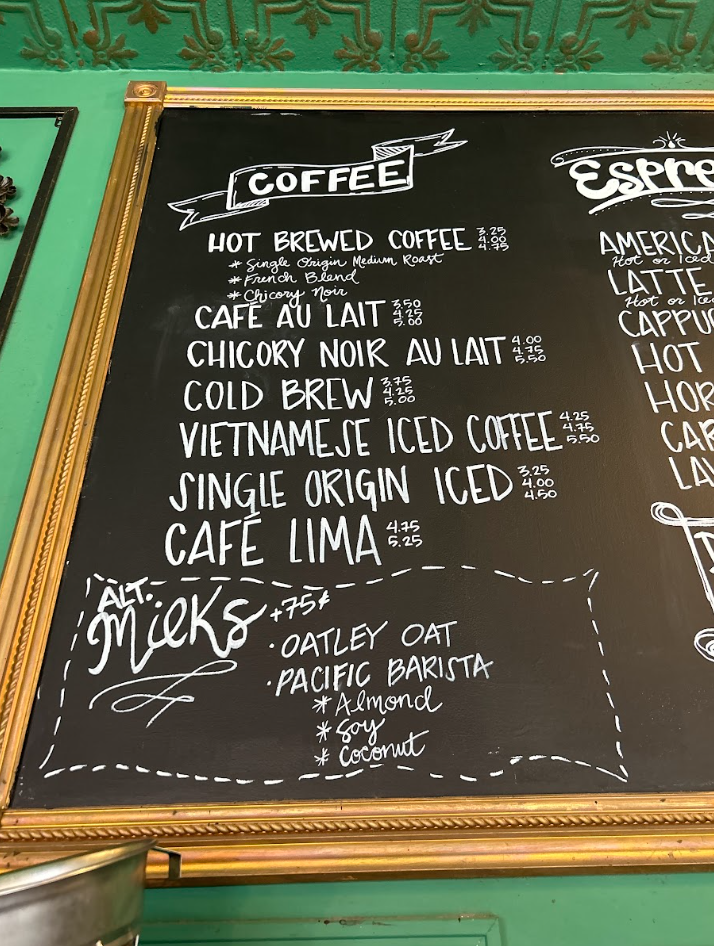 COFFEE
HOT BREWED COFFEE 3.25 4.00 4.75
* Single Origin Medium Roast
* French Blend
* Chicory Noir
CAFÉ AU LAIT 3.50 4.25 5.00
CHICORY NOIR AU LAIT 4.00 4.75 5.50
COLD BREW 3.75 4.25 5.00
VIETNAMESE ICED COFFEE 4.25 4.75 5.50
SINGLE ORIGIN ICED 3.25 4.00 4.50
CAFÉ LIMA 4.75 5.25
ALT. Milks +75¢
· OATLEY OAT
· PACIFIC BARISTA
* Almond
* Soy
* Coconut
Espre
AMERICA
Hot or Iced
LATTE
Hot or Ice
CAPPUC
HOT
HOR
CAR
LAV